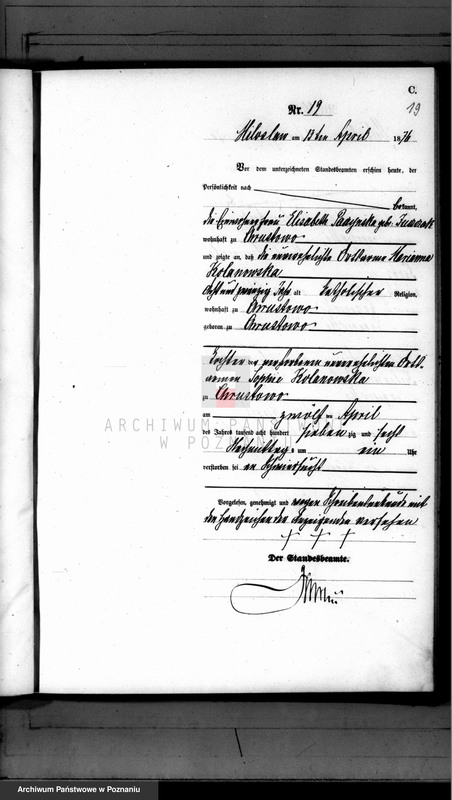 C.
Nr. 19
19
Miloslaw am 13ten April 1876
Vor dem unterzeichneten Standesbeamten erschien heute, der
Persönlichkeit nach
bekannt,
die Einwohnerfrau Elisabeth geb.
wohnhaft zu Chrustowo
und zeigte an, daß die unverehelichte Ortsarme Marianna
Kolanowska
Acht und zwanzig Jahr alt katholischer Religion,
wohnhaft zu Chrustowo
geboren zu Chrustowo
Tochter der verstorbenen unverehelichten Orts-
armen Sophie Kolanowska
zu Chrustowo
am zwölf ten April
des Jahres tausend acht hundert sieben zig und sechs
Nachmittags um ein Uhr
verstorben sei an Schwindsucht
ARCHIWUM PAŃSTWOWE
W POZNANIU
Vorgelesen, genehmigt und wegen Schreibunkunde mit
den Handzeichen der Anzeigenden versehen
+ + +
Der Standesbeamte.
Archiwum Państwowe w Poznaniu